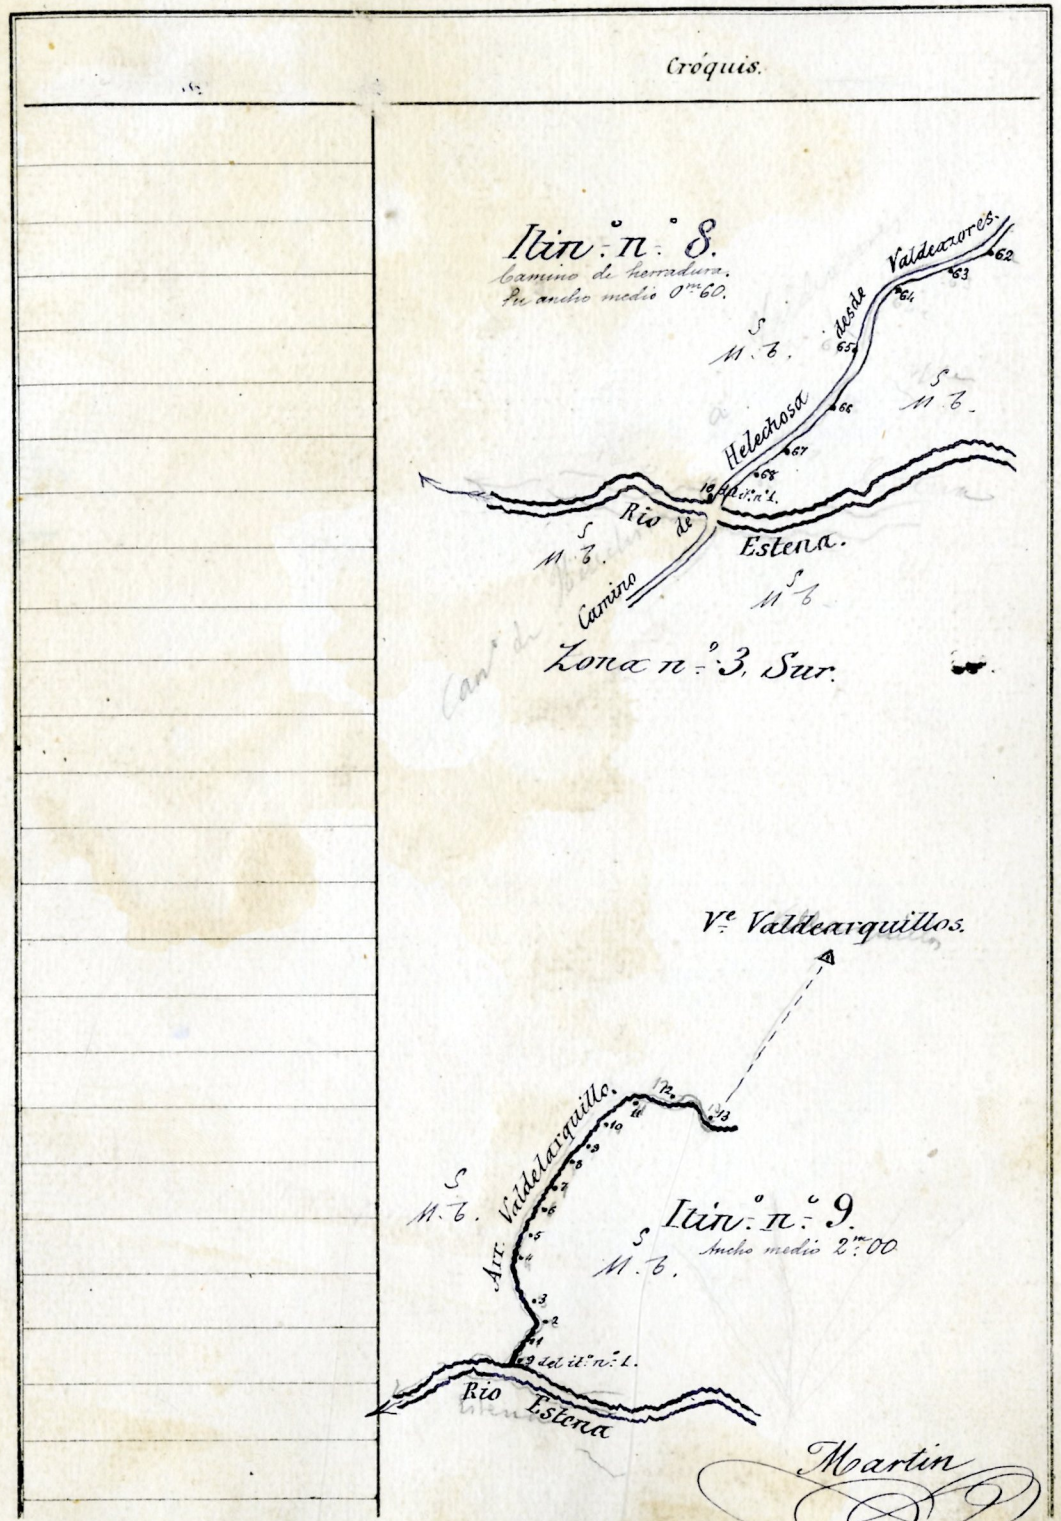 Cróquis.
Itin.º n.º 8.
Camino de herradura.
Su ancho medio 0.m60.
Camino de Helechosa desde Valdeazores.
62
63
64
65
66
67
68
10 del it.º n.º 1.
S
M. b.
S
M. b.
Rio Estena.
S
M. b.
S
M b
Zona n.º 3, Sur.
Can.º de
V.e Valdearquillos.
Arr. Valdelarquillo.
12
13
11
10
9
8
7
6
5
4
3
2
1
9 del it.º n.º 1.
S
M. b.
Itin.º n.º 9.
Ancho medio 2.m00
S
M. b.
Rio Estena
Martin